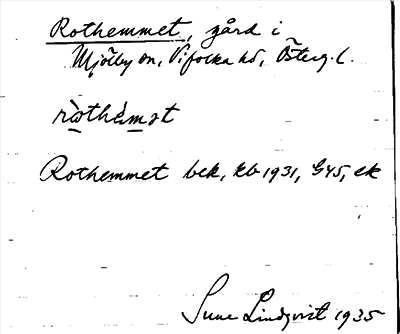 Rothemmet, gård i
Mjölby sn, Vifolka hd, Österg. l.
ròthèmət
Rothemmet bek, kb 1931, G45, ek
Sune Lindqvist 1935